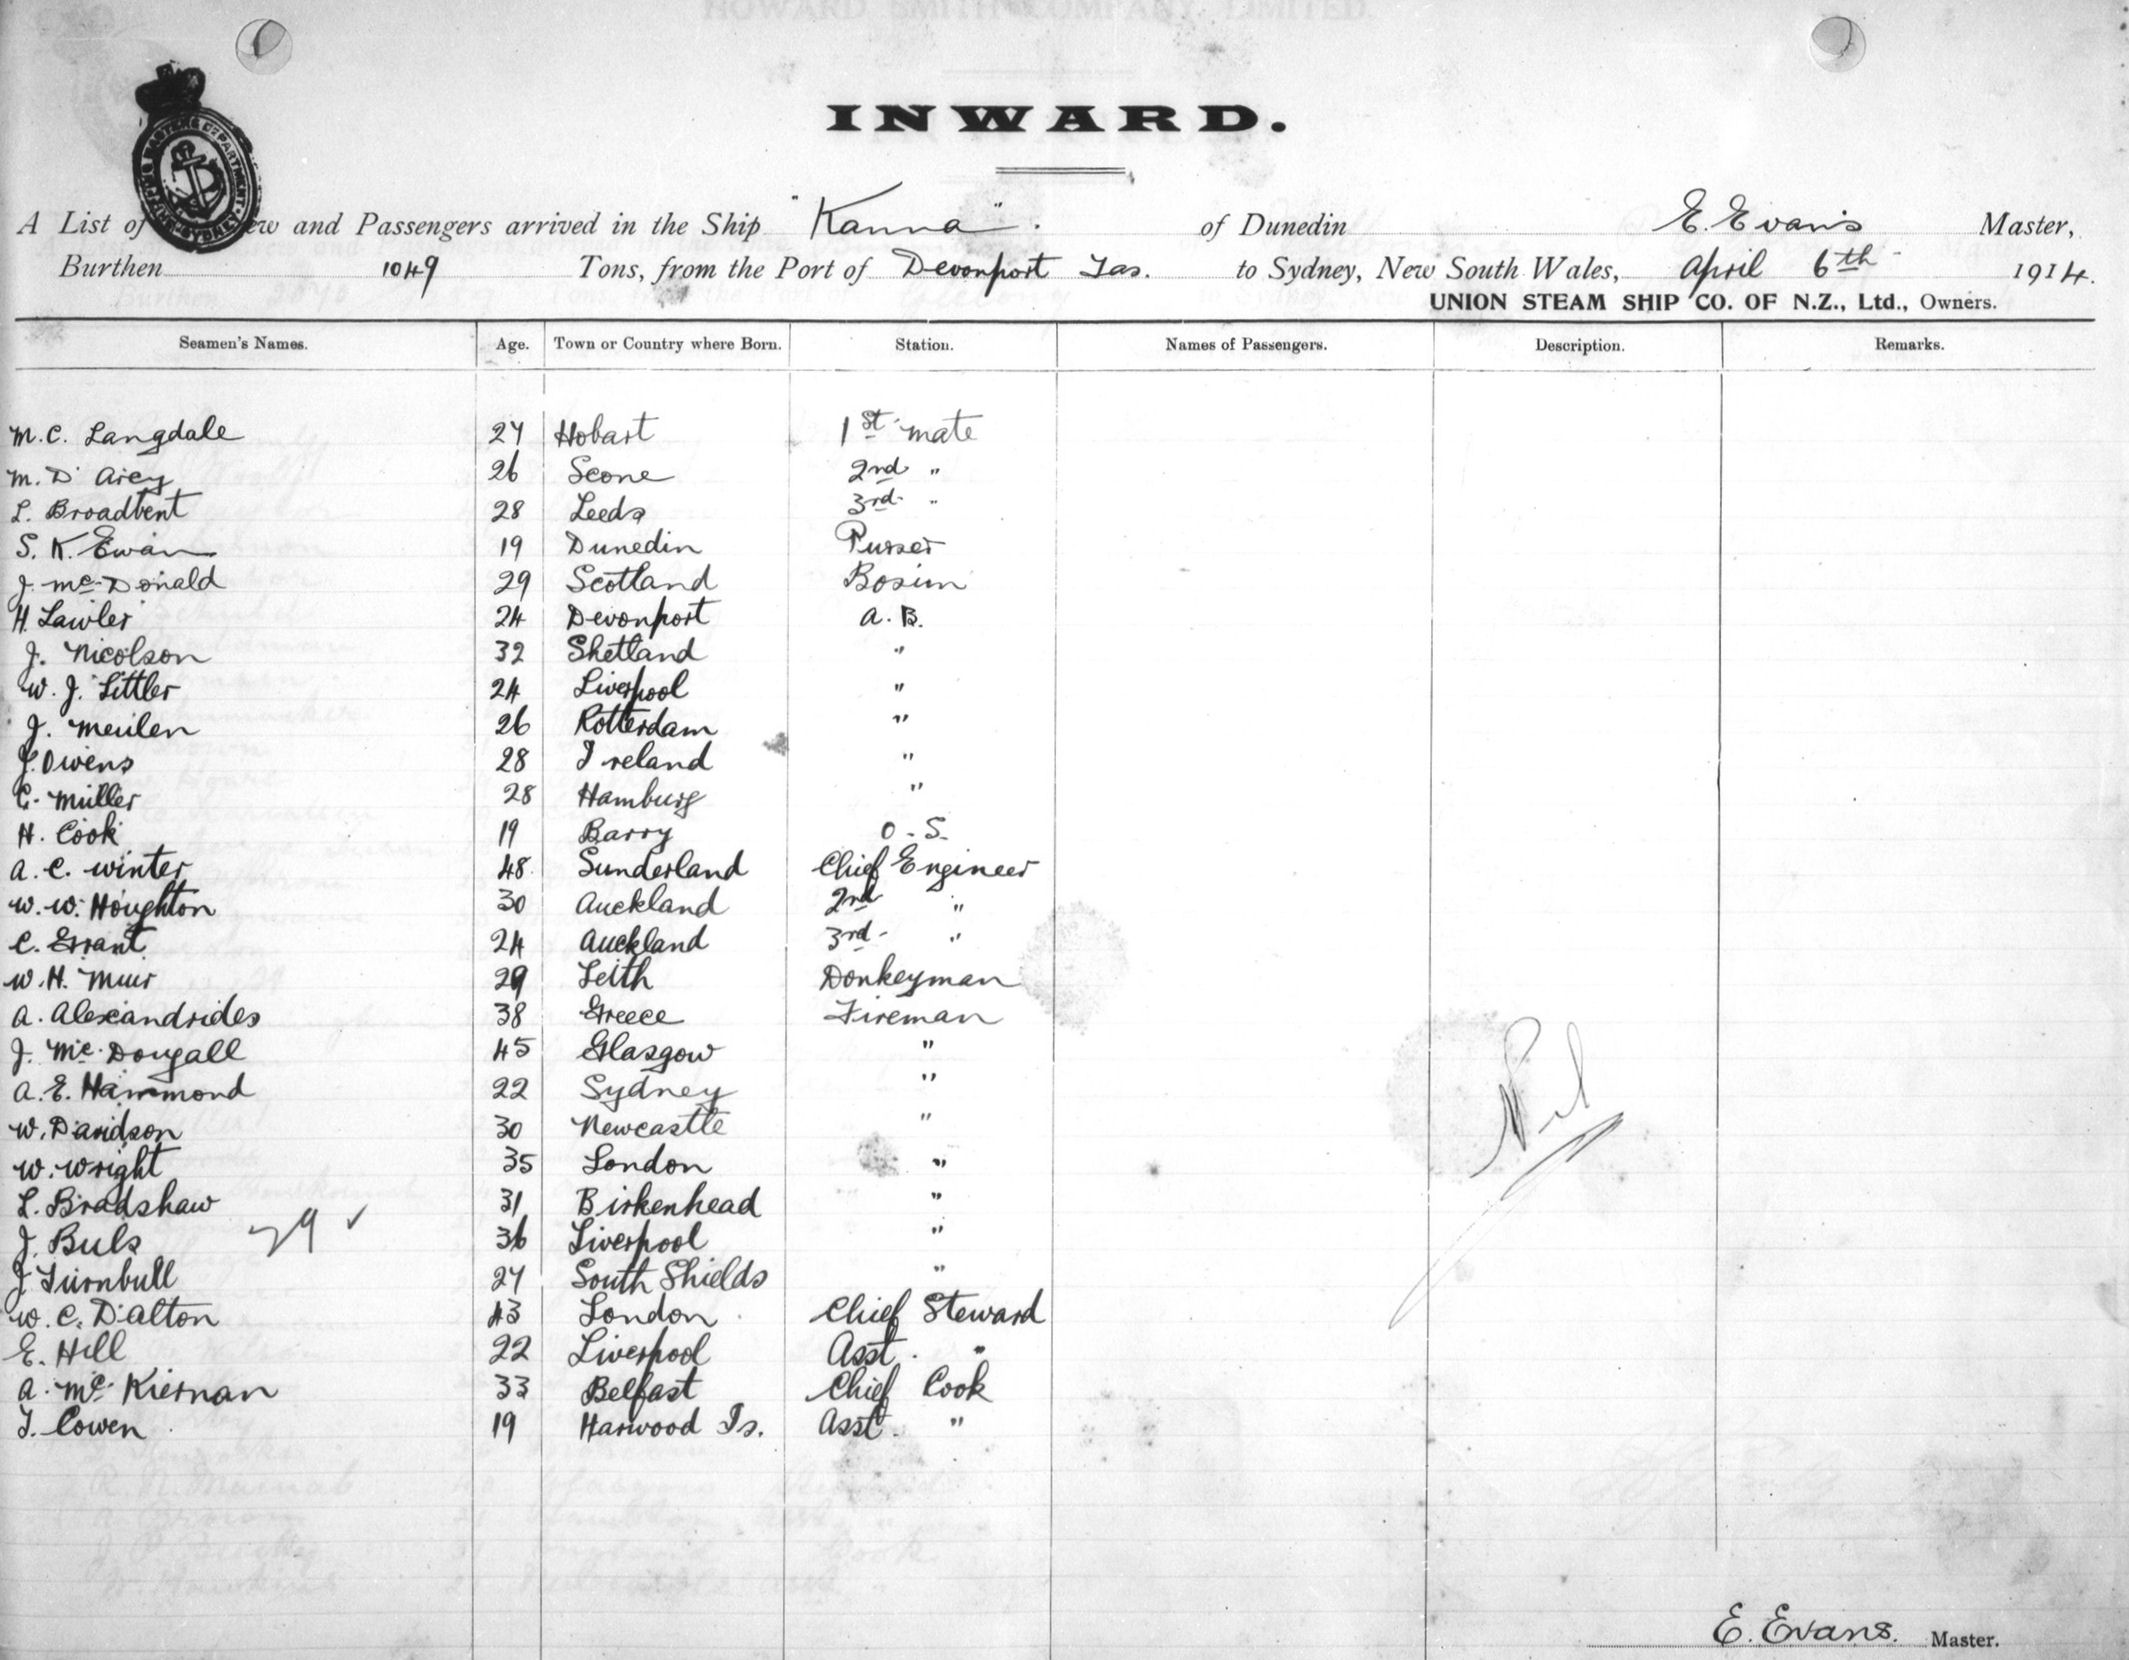 HOWARD SMITH COMPANY LIMITED
INWARD.
A List of ew and Passengers arrived in the Ship "Kanna". of Dunedin E. Evans Master,
Burthen 1049 Tons, from the Port of Devonport Tas. to Sydney, New South Wales, April 6th 1914.
UNION STEAM SHIP CO. OF N.Z., Ltd., Owners.
Seamen's Names. Age. Town or Country where Born. Station. Names of Passengers. Description. Remarks.
M. C. Langdale 27 Hobart 1st mate
M. D'Arcy 26 Scone 2nd "
L. Broadbent 28 Leeds 3rd "
S. K. Ewan 19 Dunedin Purser
J. McDonald 29 Scotland Bosun
H. Lawler 24 Devonport A. B.
J. Nicolson 32 Shetland "
W. J. Littler 24 Liverpool "
J. Meulen 26 Rotterdam "
J. Owens 28 Ireland "
C. Müller 28 Hamburg "
H. Cook 19 Barry O. S.
A. C. Winter 48 Sunderland Chief Engineer
W. W. Houghton 30 Auckland 2nd "
C. Grant 24 Auckland 3rd "
W. H. Muir 29 Leith Donkeyman
A. Alexandrides 38 Greece Fireman
J. McDougall 45 Glasgow "
A. E. Hammond 22 Sydney "
W. Davidson 30 Newcastle "
W. Wright 35 London "
L. Bradshaw 31 Birkenhead "
J. Buls 29 ✓ 36 Liverpool "
J Turnbull 27 South Shields "
W. C. Dalton 43 London Chief Steward
E. Hill 22 Liverpool Asst. "
A. McKiernan 33 Belfast Chief Cook
T. Cowen 19 Harwood Is. Asst. "
Nil
E. Evans. Master.